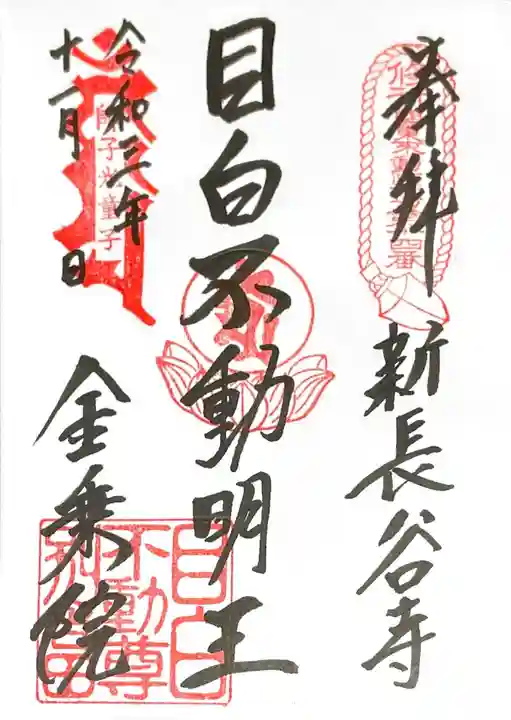 奉拝
新長谷寺
目白不動明王
令和三年
十一月 日
金乗院
師子光童子
目白
不動尊